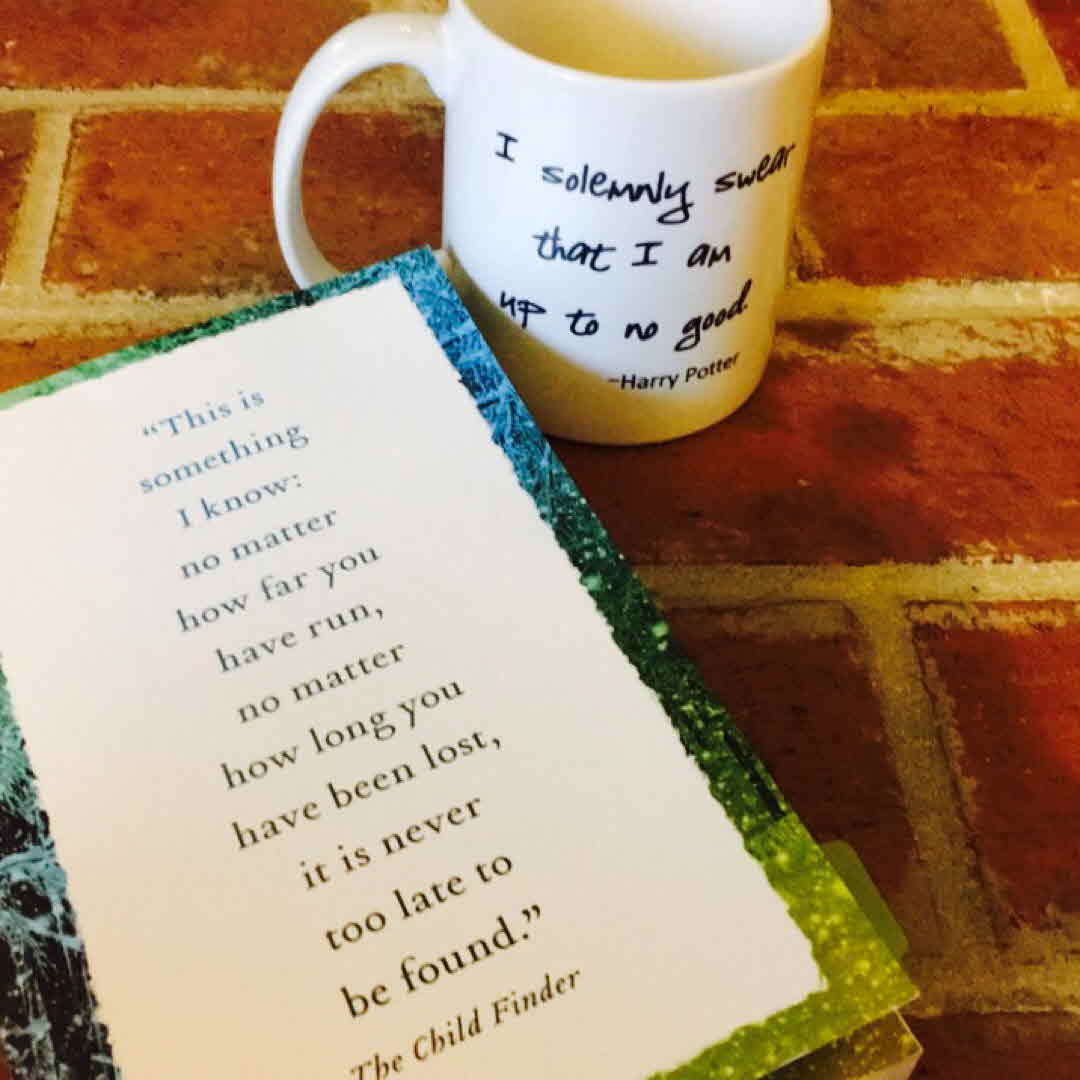 I solemnly swear
that I am
up to no good.
~Harry Potter
“This is
something
I know:
no matter
how far you
have run,
no matter
how long you
have been lost,
it is never
too late to
be found.”
The Child Finder